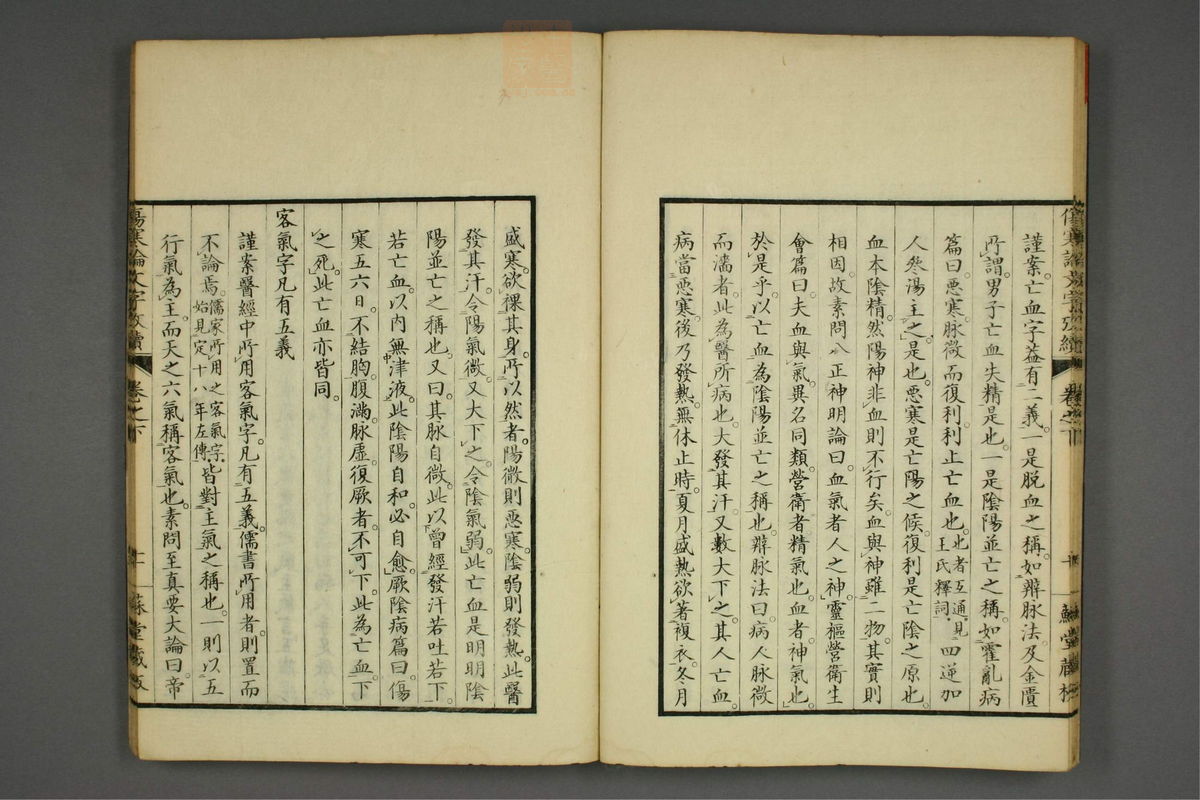 謹案亡血字蓋有二義一是脫血之稱如辨脉法及金匱
所謂男子亡血失精是也一是陰陽並亡之稱如霍亂病
篇曰惡寒脉微而復利利止亡血也此者互通見王氏釋詞四逆加
人參湯主之是也惡寒是亡陽之候復利是亡陰之原也
血本陰精然陽神非血則不行矣血與神雖二物其實則
相因故素問八正神明論曰血氣者人之神靈樞營衛生
會篇曰夫血與氣異名同類營衛者精氣也血者神氣也
於是乎以亡血為陰陽並亡之稱也辨脉法曰病人脉微
而濇者此為醫所病也大發其汗又數大下之其人亡血
病當惡寒後乃發熱無休止時夏月盛熱欲著複衣冬月
盛寒欲裸其身所以然者陽微則惡寒陰弱則發熱此醫
發其汗令陽氣微又大下之令陰氣弱此亡血是明明陰
陽並亡之稱也又曰其脉自微此以曾經發汗若吐若下
若亡血以內無津液此陰陽自和必自愈厥陰病篇曰傷
寒五六日不結胸腹滿脉虛復厥者不可下此為亡血下
之死此亡血亦皆同
客氣字凡有五義
謹案醫經中所用客氣字凡有五義儒書所用者則置而
不論焉儒家所用之客氣字始見定十八年左傳皆對主氣之稱也一則以五
行氣為主而天之六氣稱客氣也素問至真要大論曰帝
傷寒論文字攷續 卷之下